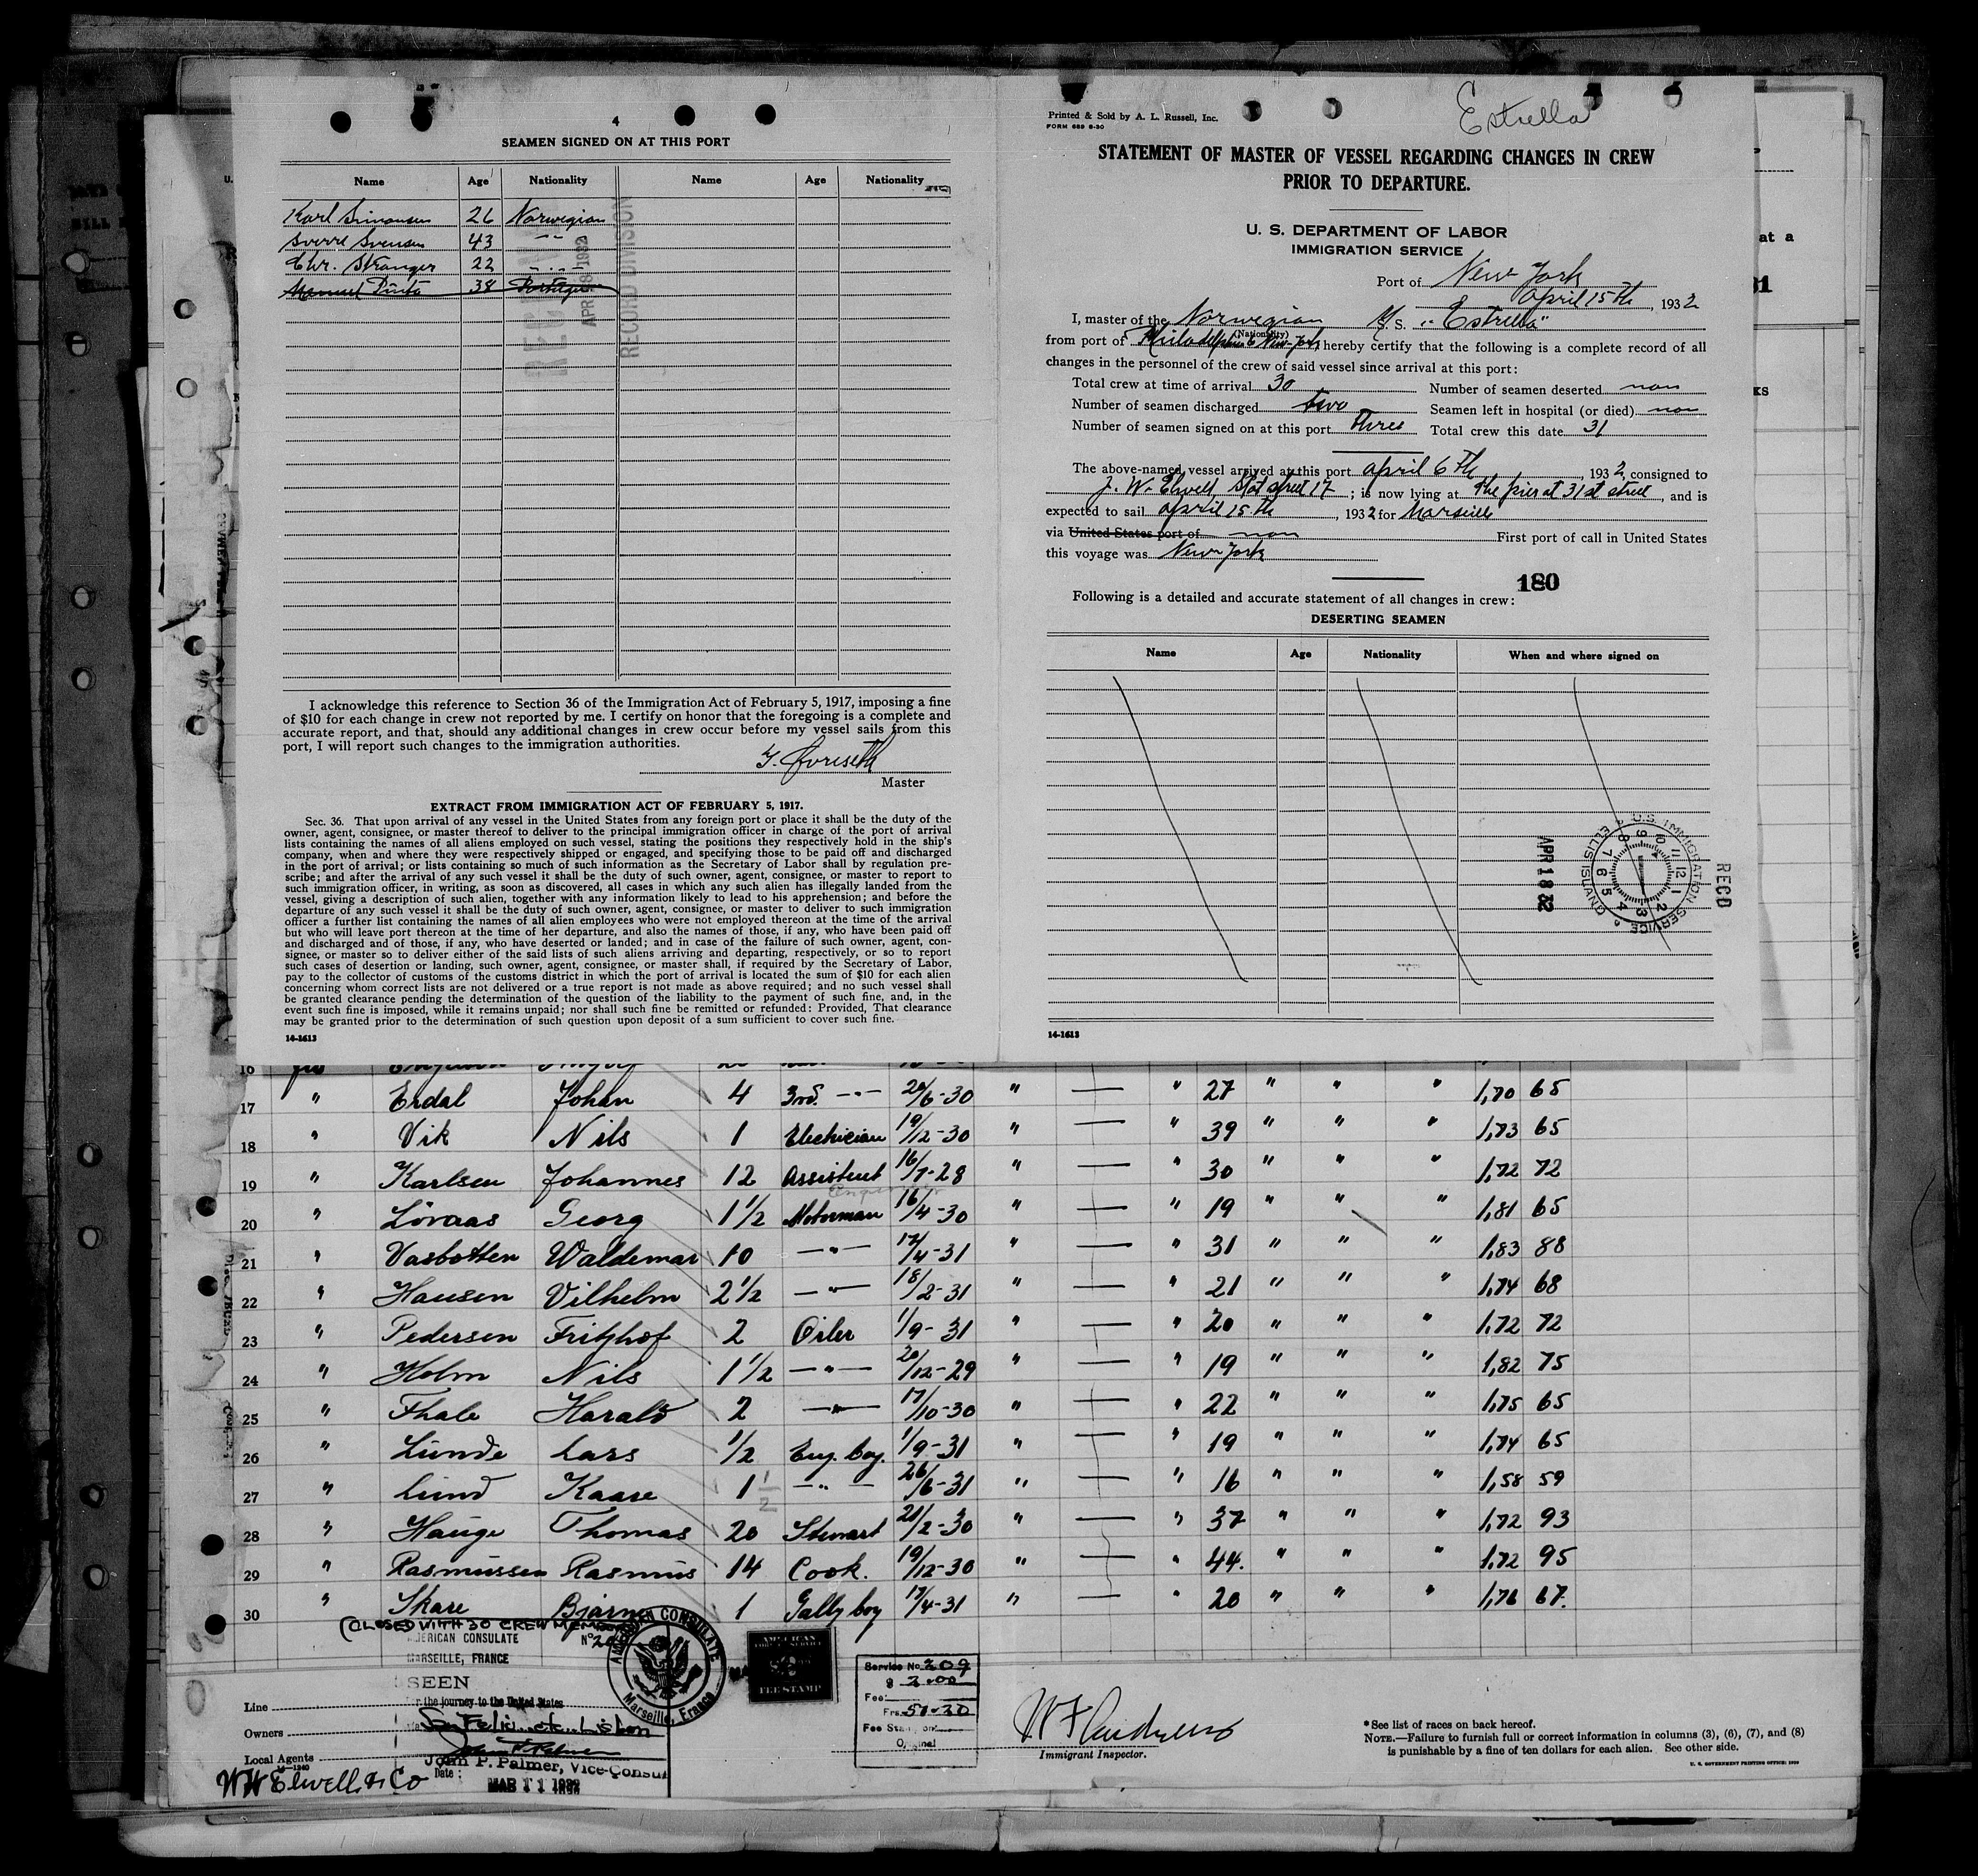 4
SEAMEN SIGNED ON AT THIS PORT
Name Age Nationality Name Age Nationality
Karl Simonsen 26 Norwegian
Sverre Svensen 43 -"-
Chr. Stranger 22 -"-
Manuel Pinto 38
APR 1932
RECORD DIVISION
I acknowledge this reference to Section 36 of the Immigration Act of February 5, 1917, imposing a fine
of $10 for each change in crew not reported by me. I certify on honor that the foregoing is a complete and
accurate report, and that, should any additional changes in crew occur before my vessel sails from this
port, I will report such changes to the immigration authorities.
Master
EXTRACT FROM IMMIGRATION ACT OF FEBRUARY 5, 1917.
Sec. 36. That upon arrival of any vessel in the United States from any foreign port or place it shall be the duty of the
owner, agent, consignee, or master thereof to deliver to the principal immigration officer in charge of the port of arrival
lists containing the names of all aliens employed on such vessel, stating the positions they respectively hold in the ship's
company, when and where they were respectively shipped or engaged, and specifying those to be paid off and discharged
in the port of arrival; or lists containing so much of such information as the Secretary of Labor shall by regulation pre-
scribe; and after the arrival of any such vessel it shall be the duty of such owner, agent, consignee, or master to report to
such immigration officer, in writing, as soon as discovered, all cases in which any such alien has illegally landed from the
vessel, giving a description of such alien, together with any information likely to lead to his apprehension; and before the
departure of any such vessel it shall be the duty of such owner, agent, consignee, or master to deliver to such immigration
officer a further list containing the names of all alien employees who were not employed thereon at the time of the arrival
but who will leave port thereon at the time of her departure, and also the names of those, if any, who have been paid off
and discharged and of those, if any, who have deserted or landed; and in case of the failure of such owner, agent, con-
signee, or master so to deliver either of the said lists of such aliens arriving and departing, respectively, or so to report
such cases of desertion or landing, such owner, agent, consignee, or master shall, if required by the Secretary of Labor,
pay to the collector of customs of the customs district in which the port of arrival is located the sum of $10 for each alien
concerning whom correct lists are not delivered or a true report is not made as above required; and no such vessel shall
be granted clearance pending the determination of the question of the liability to the payment of such fine, and, in the
event such fine is imposed, while it remains unpaid; nor shall such fine be remitted or refunded: Provided, That clearance
may be granted prior to the determination of such question upon deposit of a sum sufficient to cover such fine.
14-1613
Estrella
Printed & Sold by A. L. Russell, Inc.
FORM 689 6-30
STATEMENT OF MASTER OF VESSEL REGARDING CHANGES IN CREW
PRIOR TO DEPARTURE.
U. S. DEPARTMENT OF LABOR
IMMIGRATION SERVICE
Port of New York
April 15th, 1932
I, master of the Norwegian M/S. S. "Estrella"
(Nationality)
from port of Philadelphia & New-York, hereby certify that the following is a complete record of all
changes in the personnel of the crew of said vessel since arrival at this port:
Total crew at time of arrival 30 Number of seamen deserted non
Number of seamen discharged two Seamen left in hospital (or died) non
Number of seamen signed on at this port three Total crew this date 31
The above-named vessel arrived at this port april 6th, 1932, consigned to
J. W. Elwell, Stat street 17; is now lying at the pier at 31st street, and is
expected to sail april 15th, 1932 for Marseille
via United States port of non First port of call in United States
this voyage was New York
180
Following is a detailed and accurate statement of all changes in crew:
DESERTING SEAMEN
Name Age Nationality When and where signed on
U.S. IMMIGRATION SERVICE ELLIS ISLAND
APR 18 32
RECD
14-1613
at a
31
KS
16
17 " Erdal Johan 4 3rd. -"- 20/6-30 " — " 27 " " " 1,70 65
18 " Vik Nils 1 Electrician 19/12-30 " — " 39 " " " 1,73 65
19 " Karlsen Johannes 12 Assistent 16/7-28 " — " 30 " " " 1,72 72
20 " Lövaas Georg 1 1/2 Motorman 16/4-30 " — " 19 " " " 1,81 65
21 " Vasbotten Waldemar 10 -"- 17/4-31 " — " 31 " " " 1,83 88
22 " Hansen Vilhelm 2 1/2 -"- 18/2-31 " — " 21 " " " 1,74 68
23 " Pedersen Fritjhof 2 Oiler 1/9-31 " — " 20 " " " 1,72 72
24 " Holm Nils 1 1/2 -"- 20/12-29 " — " 19 " " " 1,82 75
25 " Thale Harald 2 -"- 17/10-30 " — " 22 " " " 1,75 65
26 " Lunde Lars 1/2 Eng. boy. 1/9-31 " — " 19 " " " 1,74 65
27 " Lund Kaare 1 1/2 -"- 26/6-31 " — " 16 " " " 1,58 59
28 " Hauge Thomas 20 Stewart 20/2-30 " — " 37 " " " 1,72 93
29 " Rasmussen Rasmus 14 Cook. 19/12-30 " — " 44. " " " 1,72 95
30 " Skare Bjarne 1 Gally boy 17/4-31 " — " 20 " " " 1,76 67.
(CLOSED WITH 30 CREW MEMBERS
AMERICAN CONSULATE
MARSEILLE, FRANCE
SEEN
for the journey to the United States
AMERICAN CONSULATE Marseille, France
AMERICAN
FEE STAMP
Line
Owners
Local Agents
W W Elwell & Co
John P. Palmer, Vice-Consul
Date: MAR 11 1932
Service No. 209
$ 2.00
Fee:
Frs. 51-30
Fee Stamp on
Original
Immigrant Inspector.
*See list of races on back hereof.
NOTE.—Failure to furnish full or correct information in columns (3), (6), (7), and (8)
is punishable by a fine of ten dollars for each alien. See other side.
U. S. GOVERNMENT PRINTING OFFICE: 1930